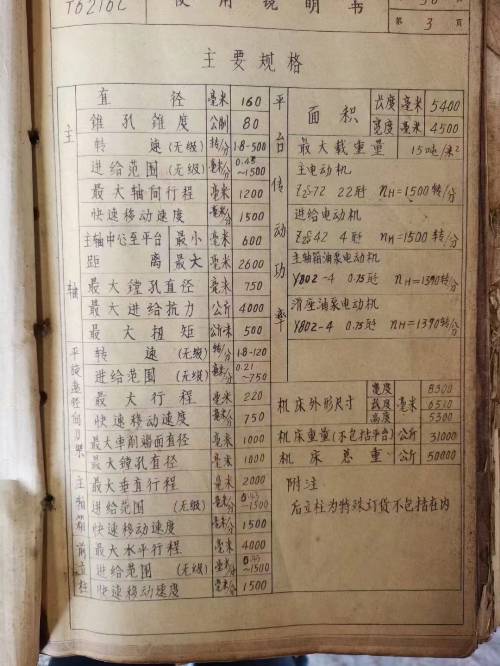 T6216C 使用说明书
第 3 页
主要规格
主轴
直径 毫米 160
锥孔锥度 公制 80
转速 (无级) 转/分 1.8-500
进给范围 (无级) 毫米/分 0.45~1500
最大轴向行程 毫米 1200
快速移动速度 毫米/分 1500
主轴中心至平台距离 最小 毫米 600
最大 毫米 2600
最大镗孔直径 毫米 750
最大进给抗力 公斤 4000
最大扭矩 公斤·米 500
平旋盘径向刀架
转速 (无级) 转/分 1.8-120
进给范围 (无级) 毫米/分 0.21~750
最大行程 毫米 220
快速移动速度 毫米/分 750
最大车削端面直径 毫米 1000
最大镗孔直径 毫米 1000
主轴箱
最大垂直行程 毫米 2000
进给范围 (无级) 毫米/分 0.45~1500
快速移动速度 毫米/分 1500
前立柱
最大水平行程 毫米 4000
进给范围 (无级) 毫米/分 0.45~1500
快速移动速度 毫米/分 1500
平台
面积 长度 毫米 5400
宽度 毫米 4500
最大载重量 15吨/米²
传动功率
主电动机
Z₂-72 22瓩 nH=1500转/分
进给电动机
Z₂-42 4瓩 nH=1500转/分
主轴箱油泵电动机
Y802-4 0.75瓩 nH=1390转/分
滑座油泵电动机
Y802-4 0.75瓩 nH=1390转/分
机床外形尺寸 宽度 毫米 8300
长度 6510
高度 5300
机床重量(不包括平台) 公斤 31000
机床总重 公斤 50000
附注
后立柱为特殊订货不包括在内